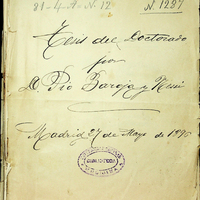 81-4-A-N.12
N. 1297
Tesis del Doctorado
por
D. Pio Baroja y Nessi
Madrid 27 de Mayo de 1896